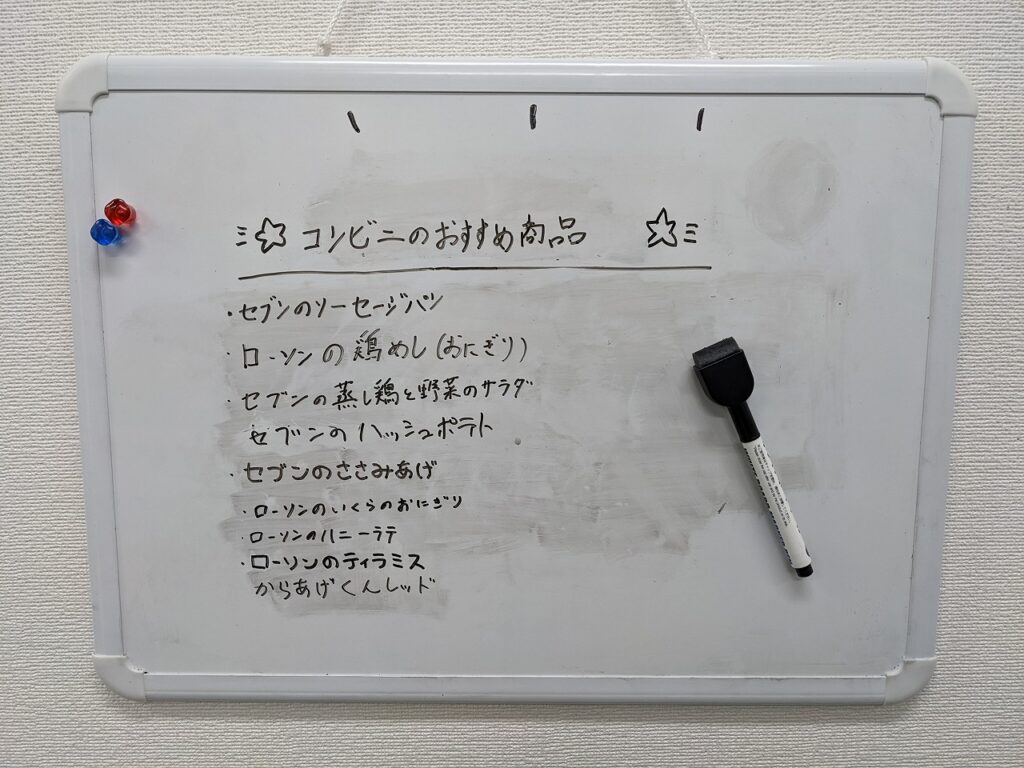 コンビニのおすすめ商品
・セブンのソーセージパン
・ローソンの鶏めし(おにぎり)
・セブンの蒸し鶏と野菜のサラダ
セブンのハッシュポテト
・セブンのささみあげ
・ローソンのいくらのおにぎり
・ローソンのハニーラテ
・ローソンのティラミス
からあげくんレッド